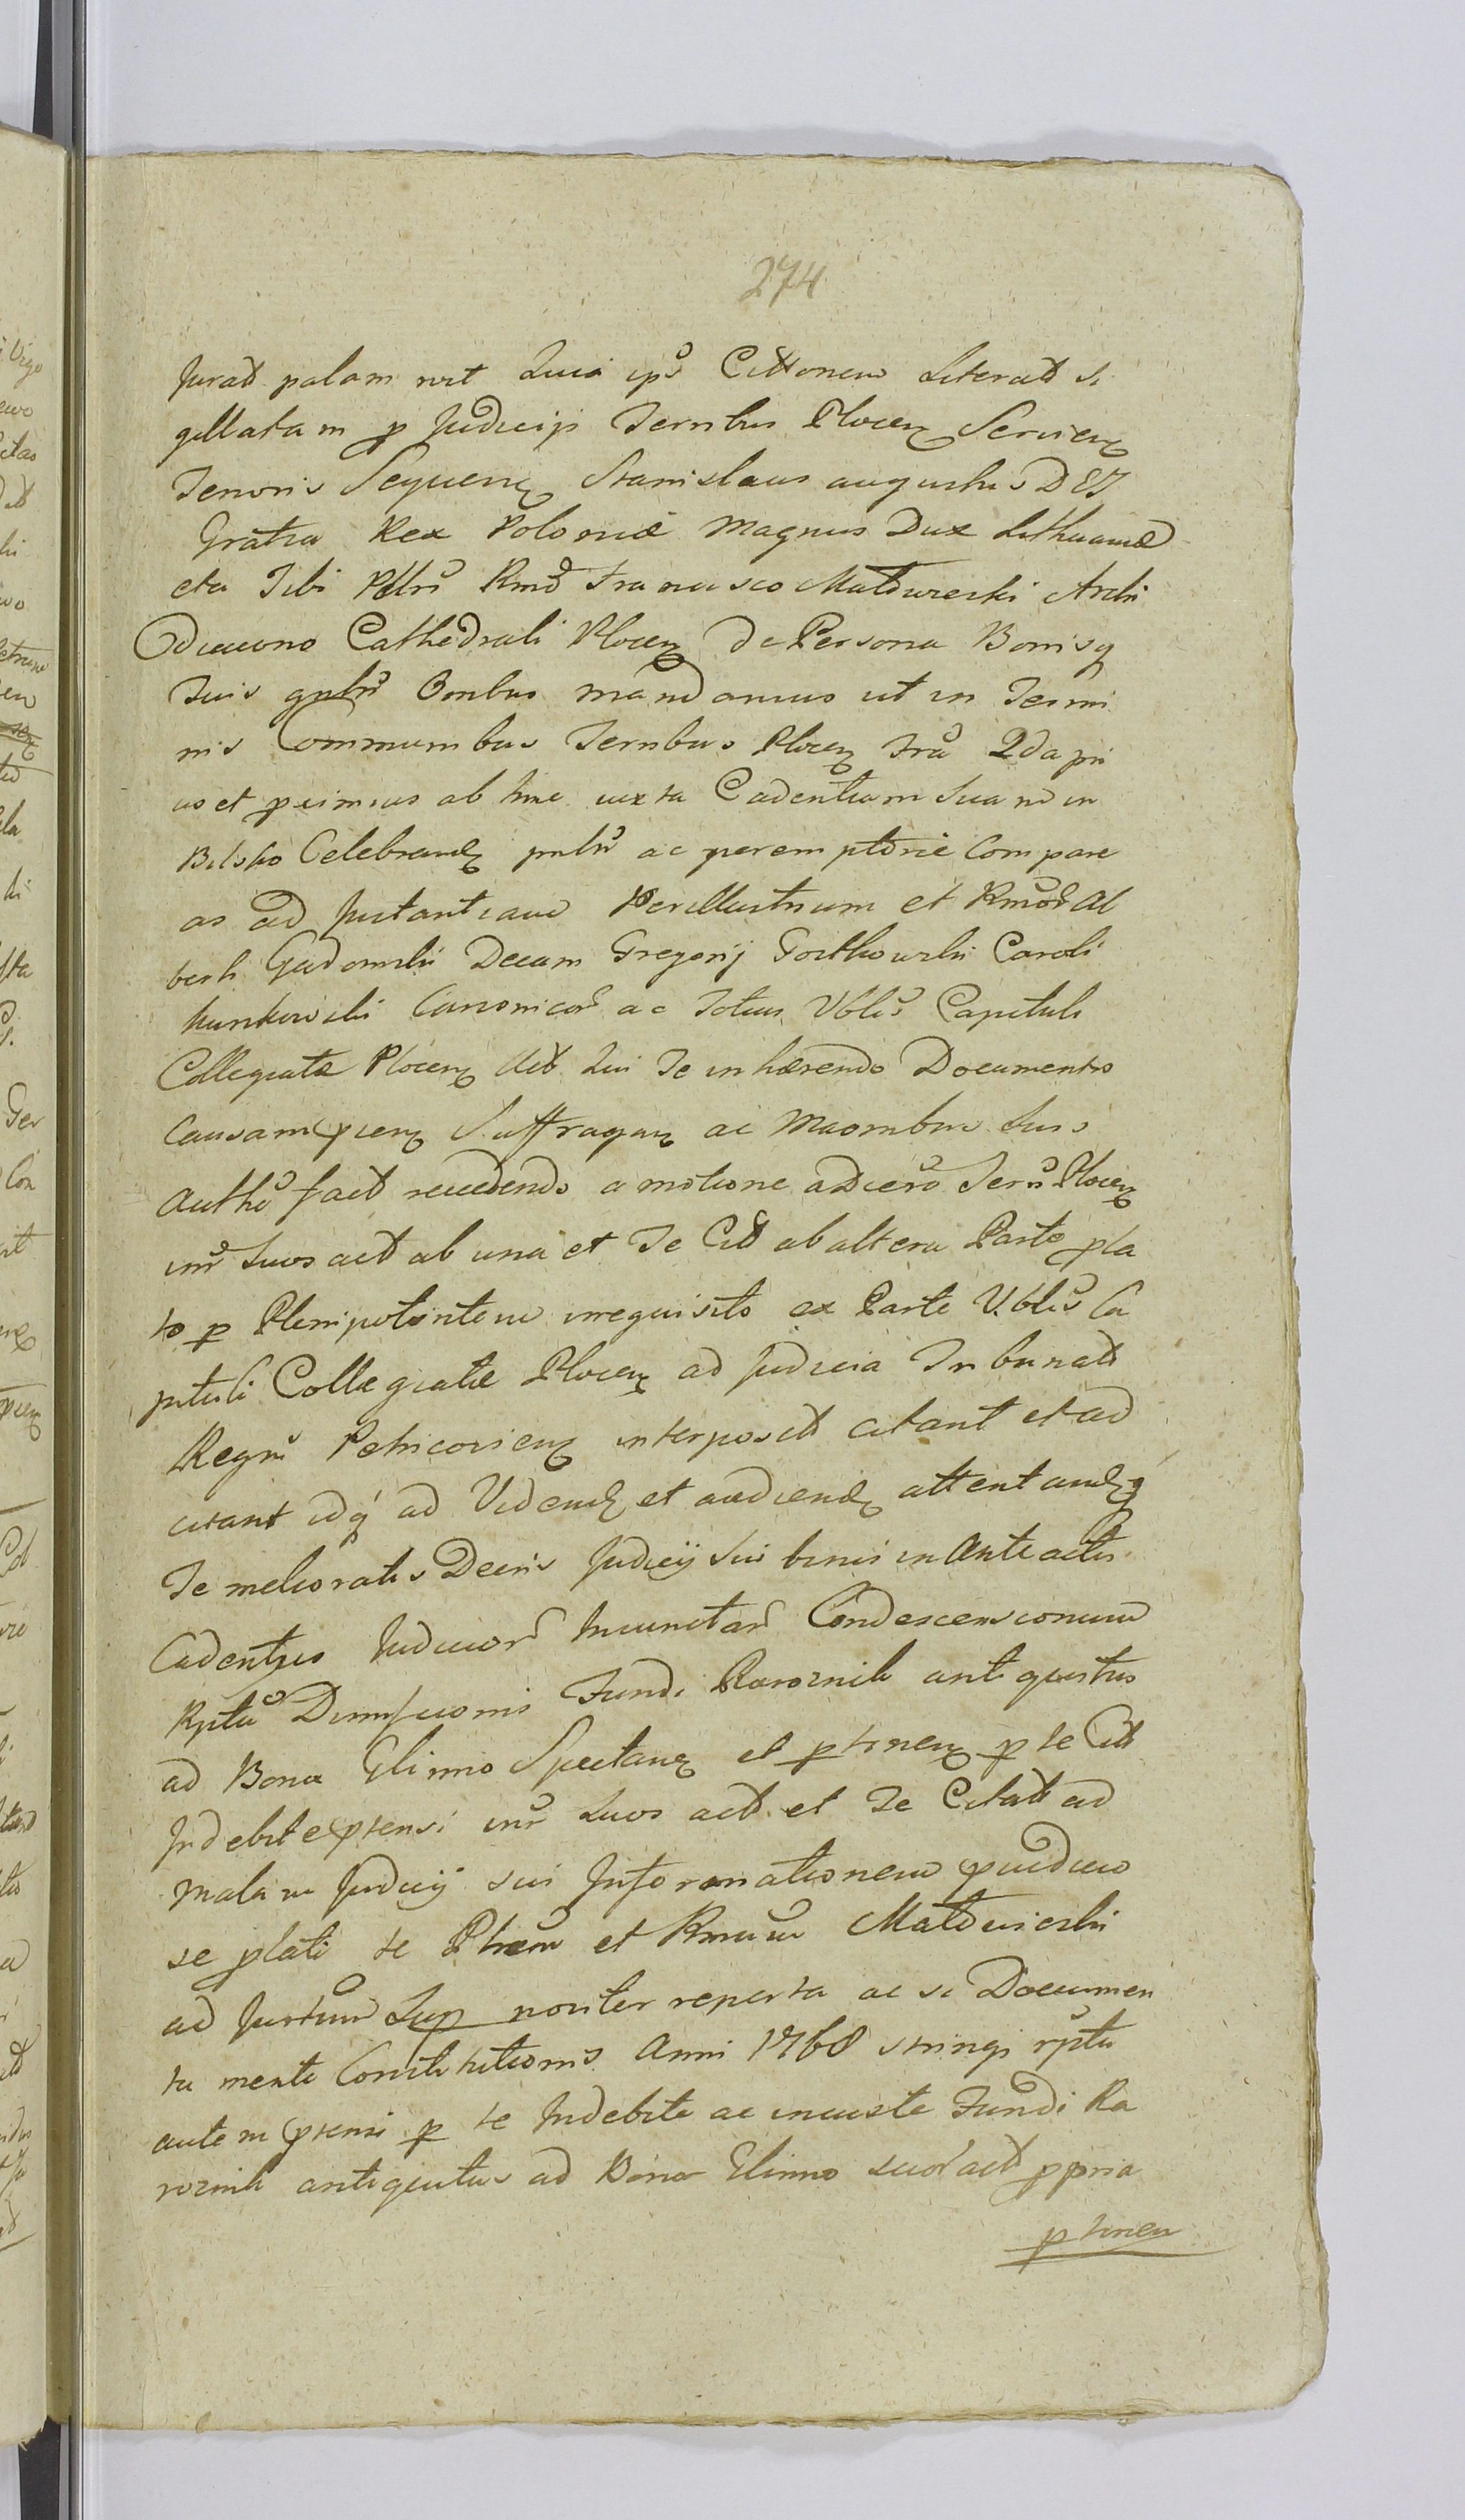 274
Jurad palam rvt Quia ips Cittonem Literatt Si
gillatam p Judicijs Ternbus Plocen Servien
Tenoris Sequenę Stanislaus augustus DEI
Gratia Rex Poloniæ Magnus Dux Lithuaniæ
etca Tibi Rmd Francisco Maldwieski Archi
Odiacono Cathedrali Plocen de Persona Bonisq
Tuis gnlr Ombus mandamus ut in Termi
nis Communibus Ternbus Plocen Fra 2da pri
us et peimius ab hinc iuxta Cadentiam Suam in
Bilsko Celebrand pnlr ac peremptorie Compare
as ad Instantiam Perillustrium et Rmor Al
berti Gadomski Decani Gregorij Gostkowski Caroli
Kunkowski Canonicor ac Totius Vblis Capituli
Collegiatæ Plocen Act Qui Te inhærendo Documentis
Causam pien Suffragan ac Maombus Suis
Autho fact recedendo a motione Terr Plocen
inr Suos act ab una et Te Citt ab altera Parte pla
to p Plenipotentem irrequisito ex Parte V.blis Ca
pituli Collegiatæ Plocen ad Judicia Tribunatt
Regni Petricovien interposit citant et ad
citant idq ad Videnď et audienď attentandq
Te melioratis Decris Judicij Sui binis in Anteactis
Cadentijs Judicior Iniunctar Condescensionum
Rptu Fundi Raroznik antiquitus
ad Bona Glinno Spectanę et ptinenę p te Citt
Indebite ptensi inr Suos act et Te Citatt ad
malam Judicij sui Informationem pindicio
se plati te et Rmum Maldwieski
ad Jurtum Sup noviter reperta ac si Documen
ta mente Constitutionis Anni 1768 stringi rptu
autem ptensi p te Indebite ac iniuste Fundi Ra
roznik antiquitus ad Bona Glinno suor act ppria
ptinen